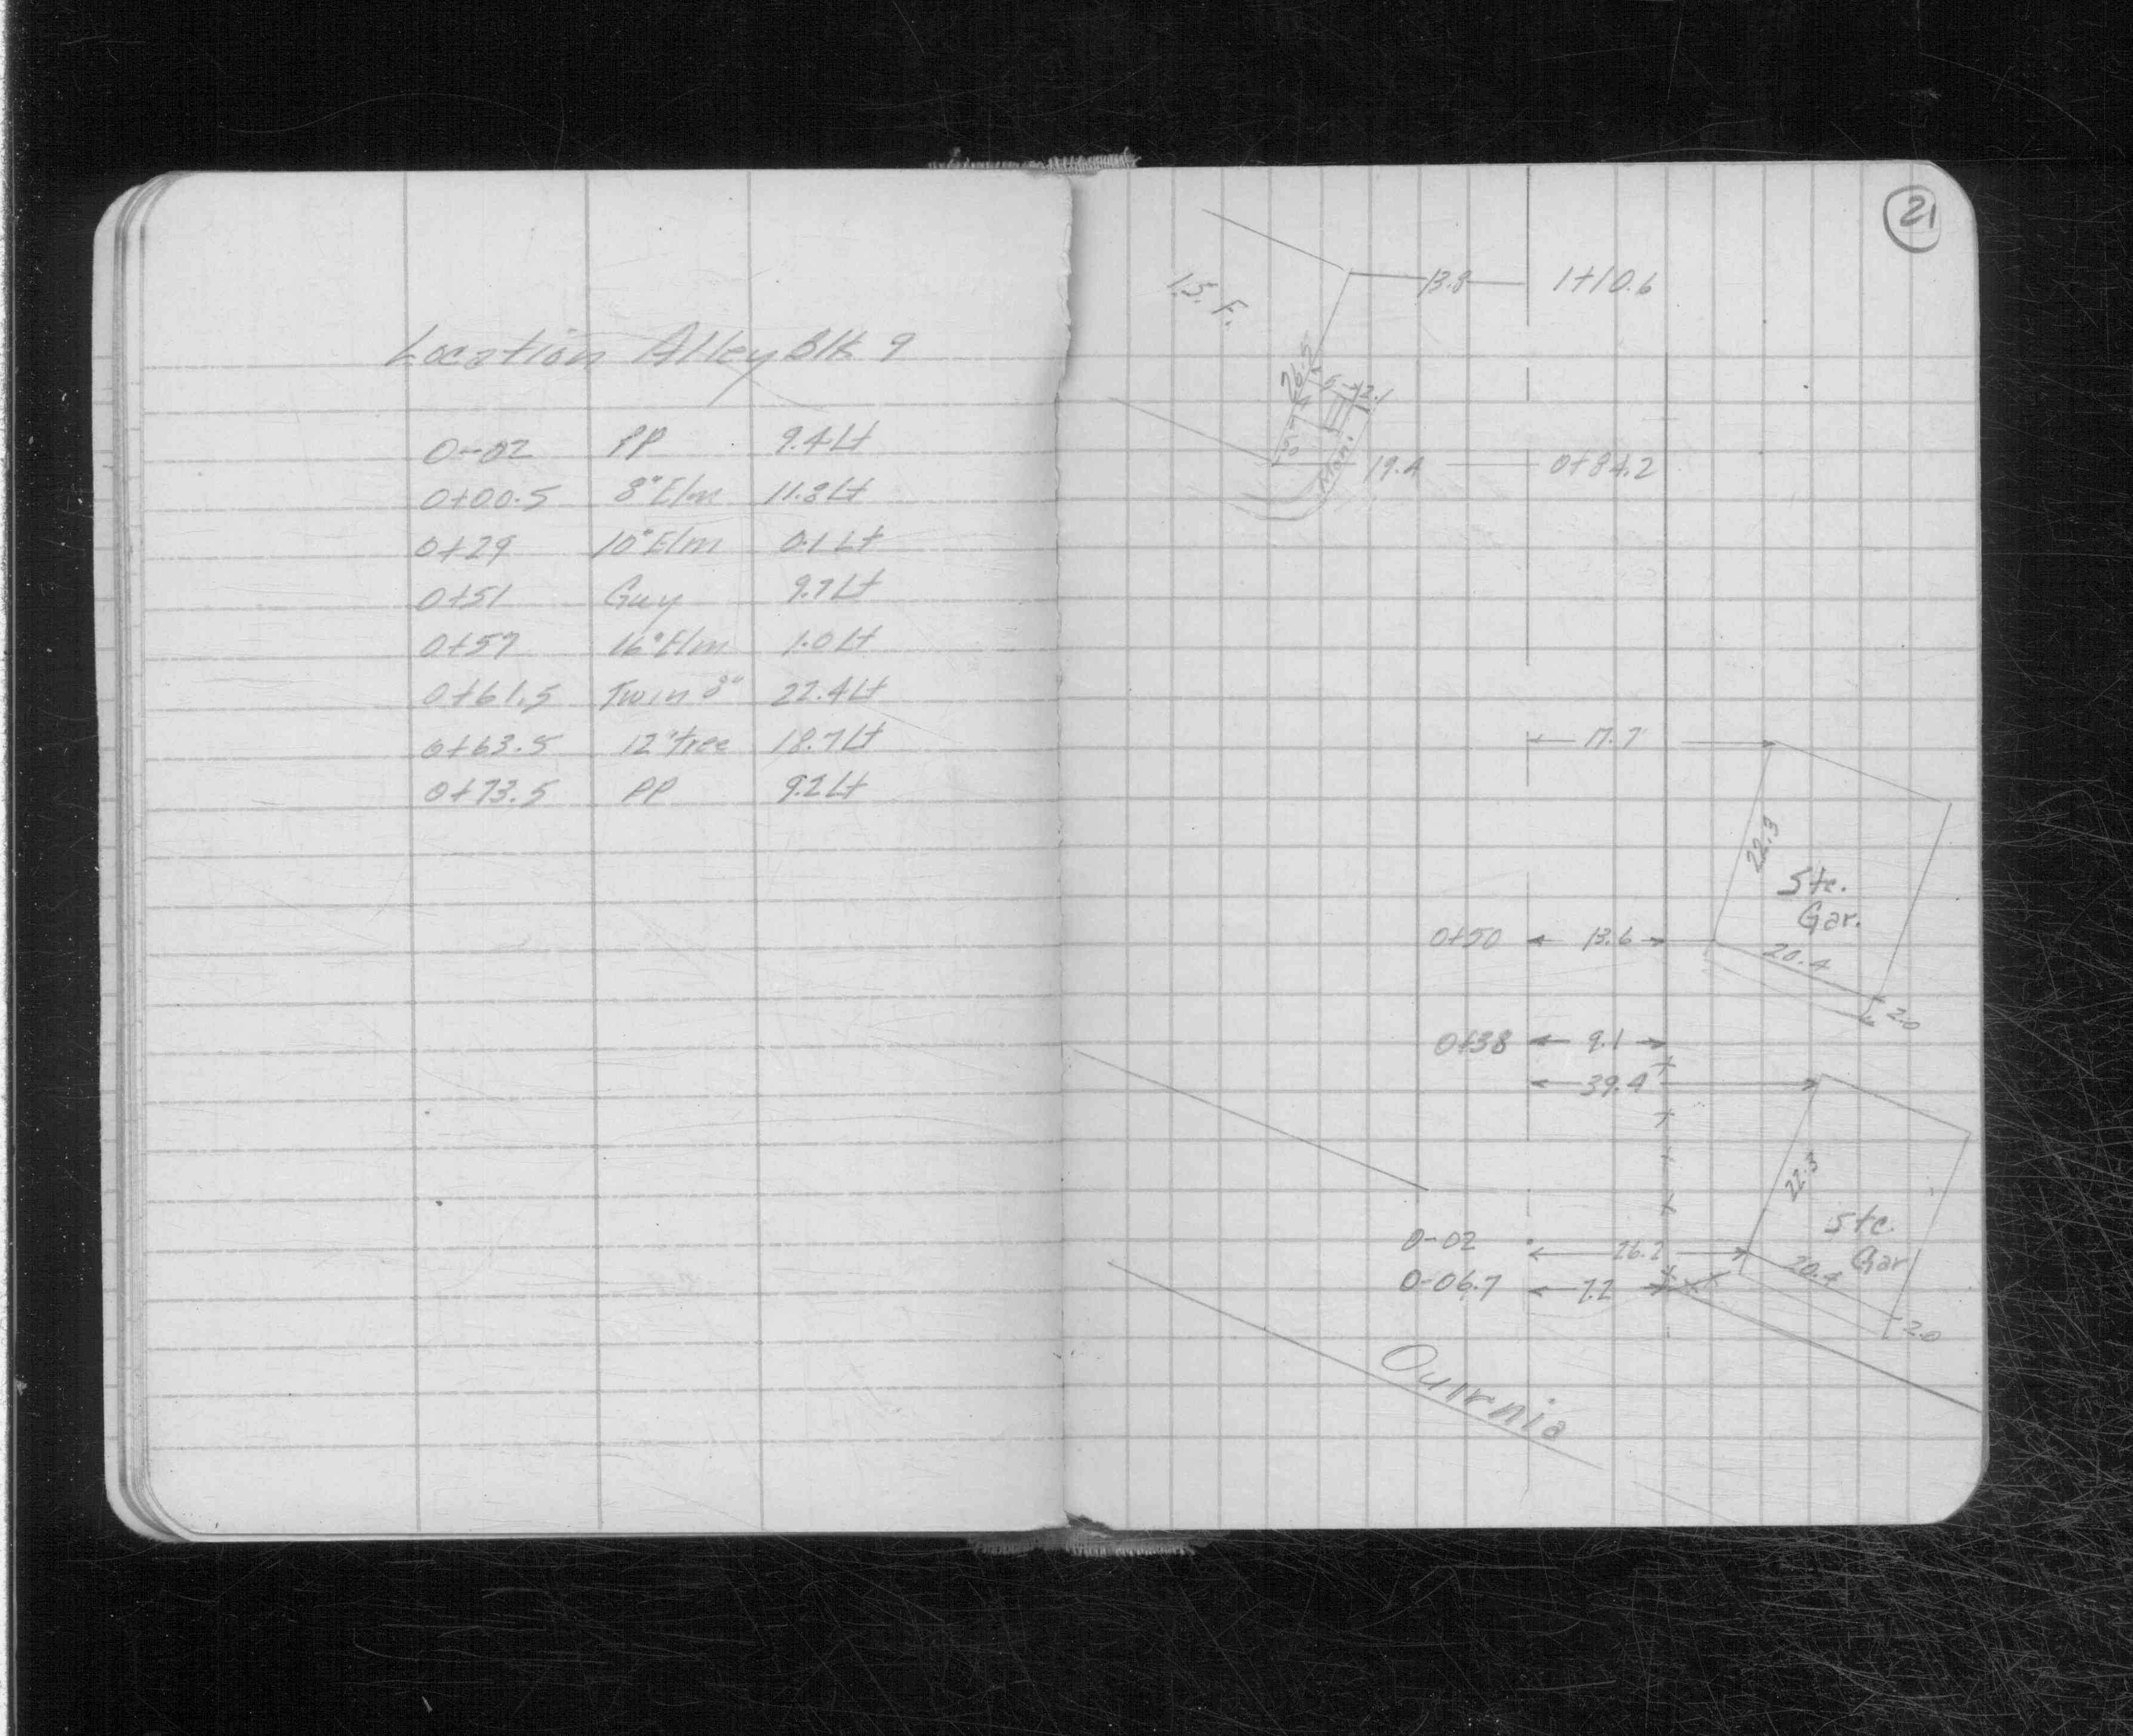 Location Alley Blk 9
0-02 PP 9.4 Lt
0+00.5 8" Elm 11.8 Lt
0+29 10" Elm 0.1 Lt
0+51 Guy 9.7 Lt
0+57 16" Elm 1.0 Lt
0+61.5 Twin 8" 22.4 Lt
0+63.5 12" tree 18.7 Lt
0+73.5 PP 9.2 Lt
21
1.S.F.
13.8 1+10.6
26.2
5 2.1
Mon.
19.4 0+84.2
17.7
22.3
Stc.
Gar.
0+50 13.6
20.4
2.0
0+38 9.1
39.4
22.3
Stc.
Gar
0-02 26.2
20.4
0-06.7 7.2
2.0
Quirnia